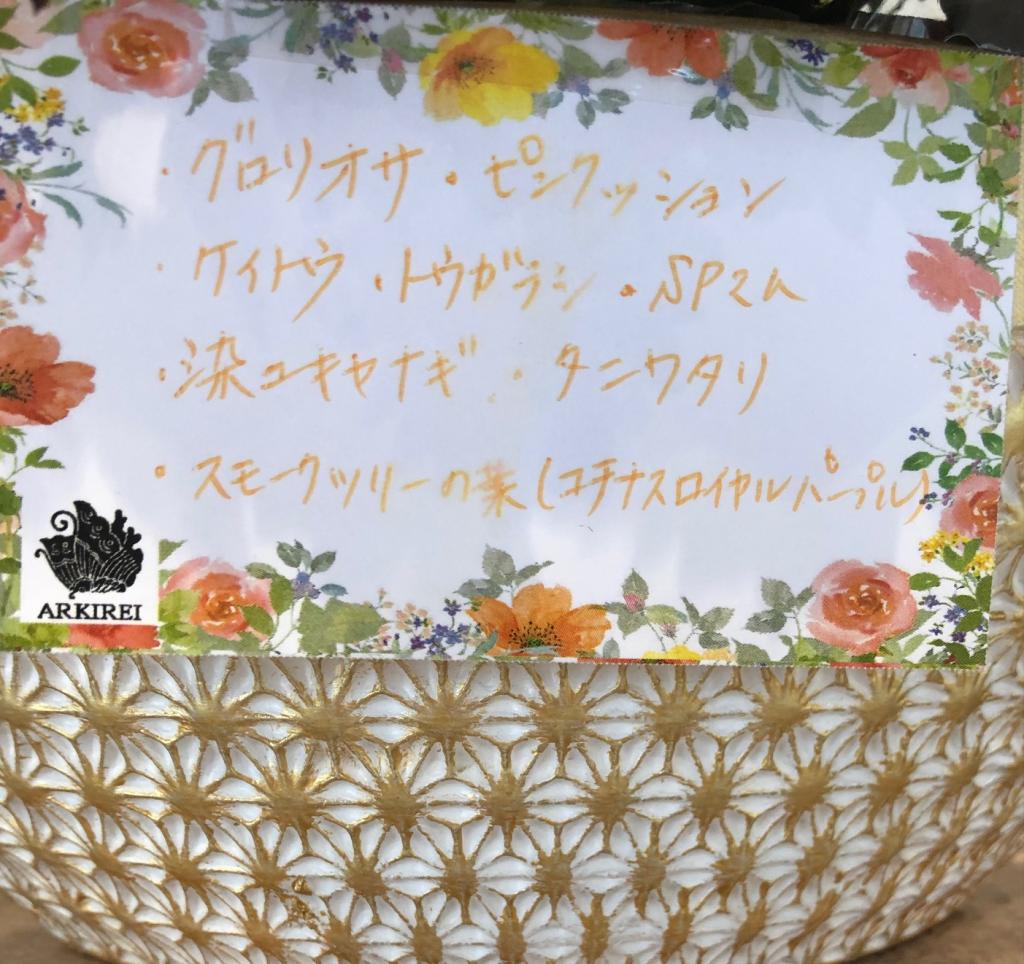 ・グロリオサ・ピンクッション
・ケイトウ・トウガラシ・SPマム
・染ユキヤナギ・タニワタリ
・スモークツリーの葉(コチナスロイヤルパープル)
ARKIREI